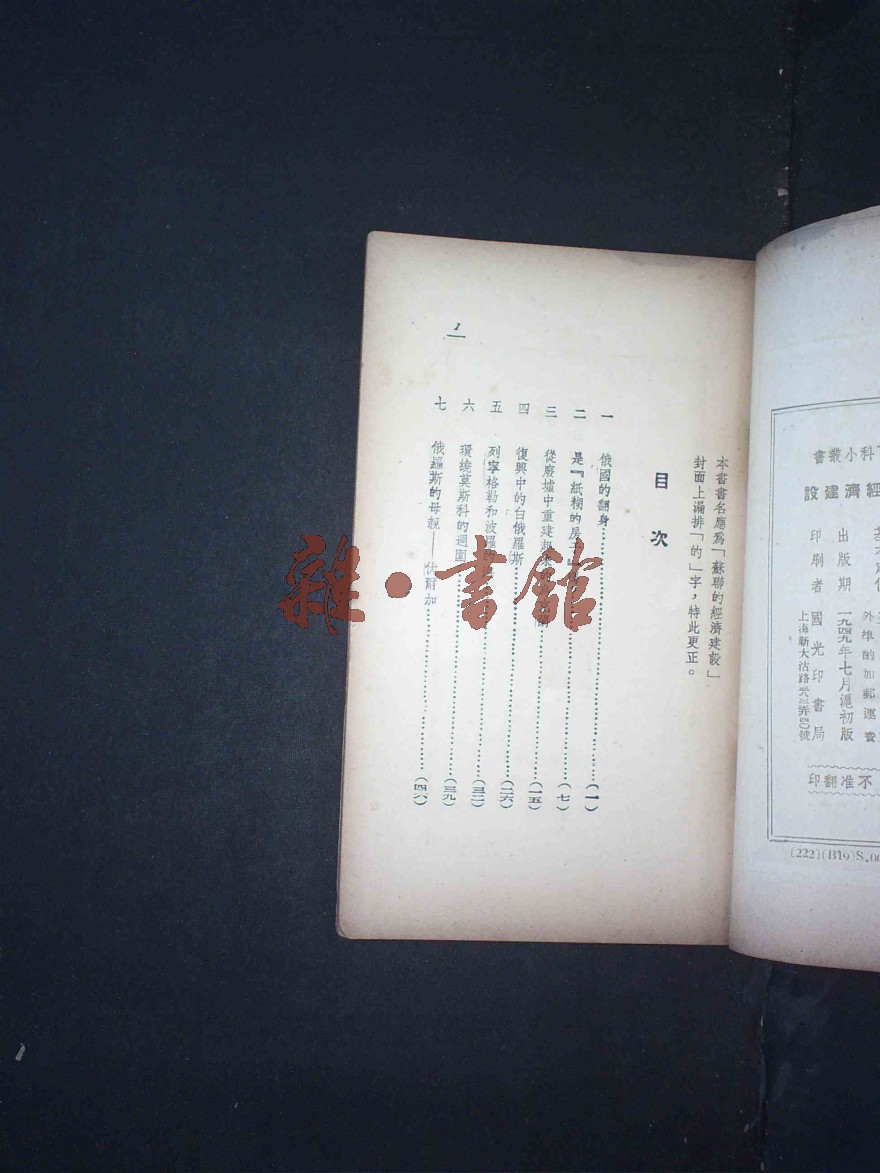 科小叢書
經濟建設
外埠酌加郵運費
出版期 一九四九年七月滬初版
印刷者 國光印書局
上海新大沽路
不准翻印
[222](B19)S.
本書書名應爲「蘇聯的經濟建設」
封面上漏排「的」字，特此更正。
目次
一 俄國的翻身……(一)
二 是『紙糊的房子』……(七)
三 從廢墟中重建……(一五)
四 復興中的白俄羅斯……(二六)
五 列寧格勒和波羅……(三二)
六 環繞莫斯科的週圍……(三九)
七 俄羅斯的母親——伏爾加……(四六)
1
雜·書館